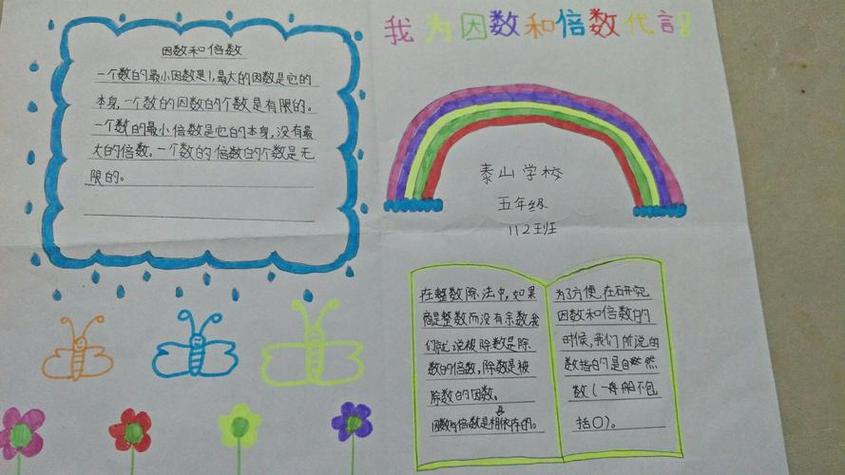 我为因数和倍数代言!
因数和倍数
一个数的最小因数是1,最大的因数是它的
本身,一个数的因数的个数是有限的。
一个数的最小倍数是它的本身,没有最
大的倍数。一个数的倍数的个数是无
限的。
泰山学校
五年级
112班
在整数除法中,如果
商是整数而没有余数,我
们就说被除数是除
数的倍数,除数是被
除数的因数。
因数与倍数是相依存的。
为了方便,在研究
因数和倍数的
时候,我们所说的
数指的是自然
数(一般不包
括0)。